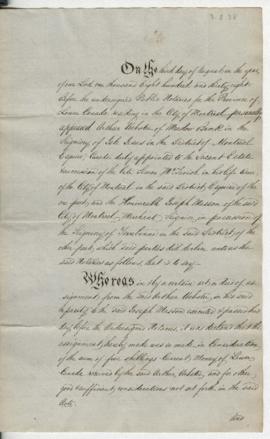 3.8.38
On the third day of August in the year
of our Lord one thousand eight hundred and thirty eight
Before the undersigned Public Notaries for the Province of
Lower Canada residing in the City of Montreal personally
appeared Arthur Webster of Meadow Bank in the
Seigniory of Isle in the District of Montreal
Esquire, Curator duly appointed to the vacant Estate
Succession of the late Simon McTavish in his life time
of the City of Montreal in the said District, Esquire of the
one part, and the Honourable Joseph Masson of the said
City of Montreal, Merchant, Esquire, in possession of
the Seigniory of Terrebonne in the said District of the
other part, which said parties did declare unto us the
said Notaries as follows, that is to say
Whereas in & by a certain act or deed of as-
signment, from the said Arthur Webster, in his said
to the said Joseph Masson executed & passed this
day before the undersigned Notaries, it was declared that the
assignment, thereby made was so made in Consideration
of the sum of five shillings Current Money of Lower
Canada received by the said Arthur Webster, and for other
good & sufficient considerations not set forth in the said
Acte